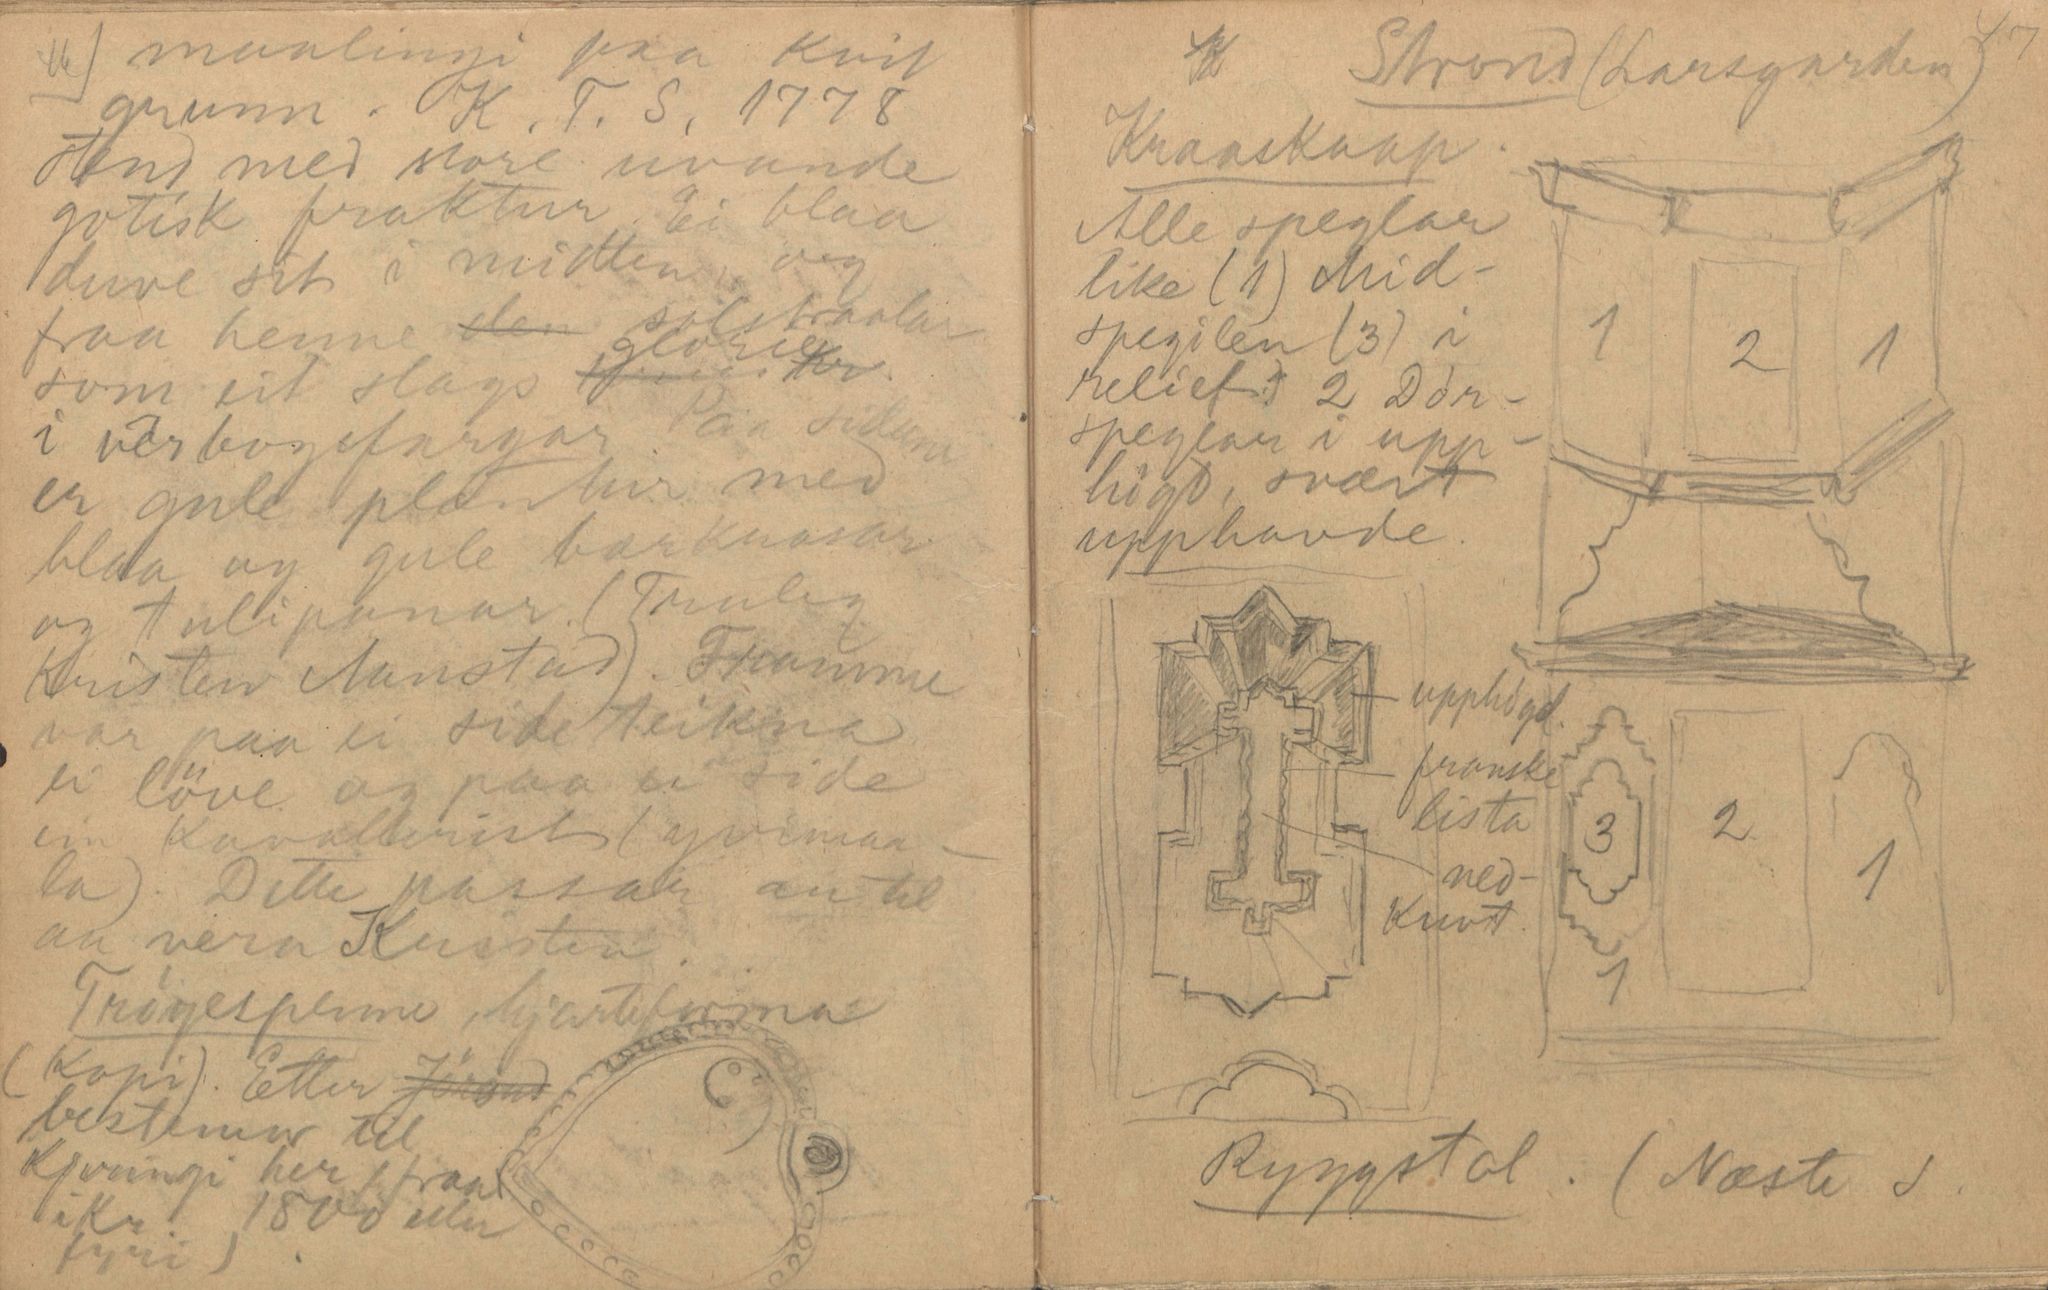 maalingi paa kvit
grunn. K. T. S. 1778
stend med store uvande
gotisk fraktur. Ei blaa
duve sit i midten, og
fraa henne den solstraalar
som eit slags glorie
i verbogefargar. Paa sidune
er gule plantur med
blaa og gule bærknasar
og tulipanar. (Truleg
Kristen Aanstad). Framme
var paa ei side teikna
ei löve og paa ei side
ein kavallerist (yvimaa-
la). Dette passar au til
aa vera Kristen.
Tröyespenne, hjarteforma
(kopi). Etter Jörand
bestemor til
Kjerringi her (fraa
ikr. 1800 eller
fyri).
47
Strond (Larsgarden)
Kraaskaap.
Alle speglar
like (1) Mid-
spegilen (3) i
relief. 2 Dör-
speglar i upp-
högd, svært
upphavde.
1
2
1
upphögd.
franske
lista
ned-
kuvt.
3
2
1
1
Ryggstol. (Næste S.